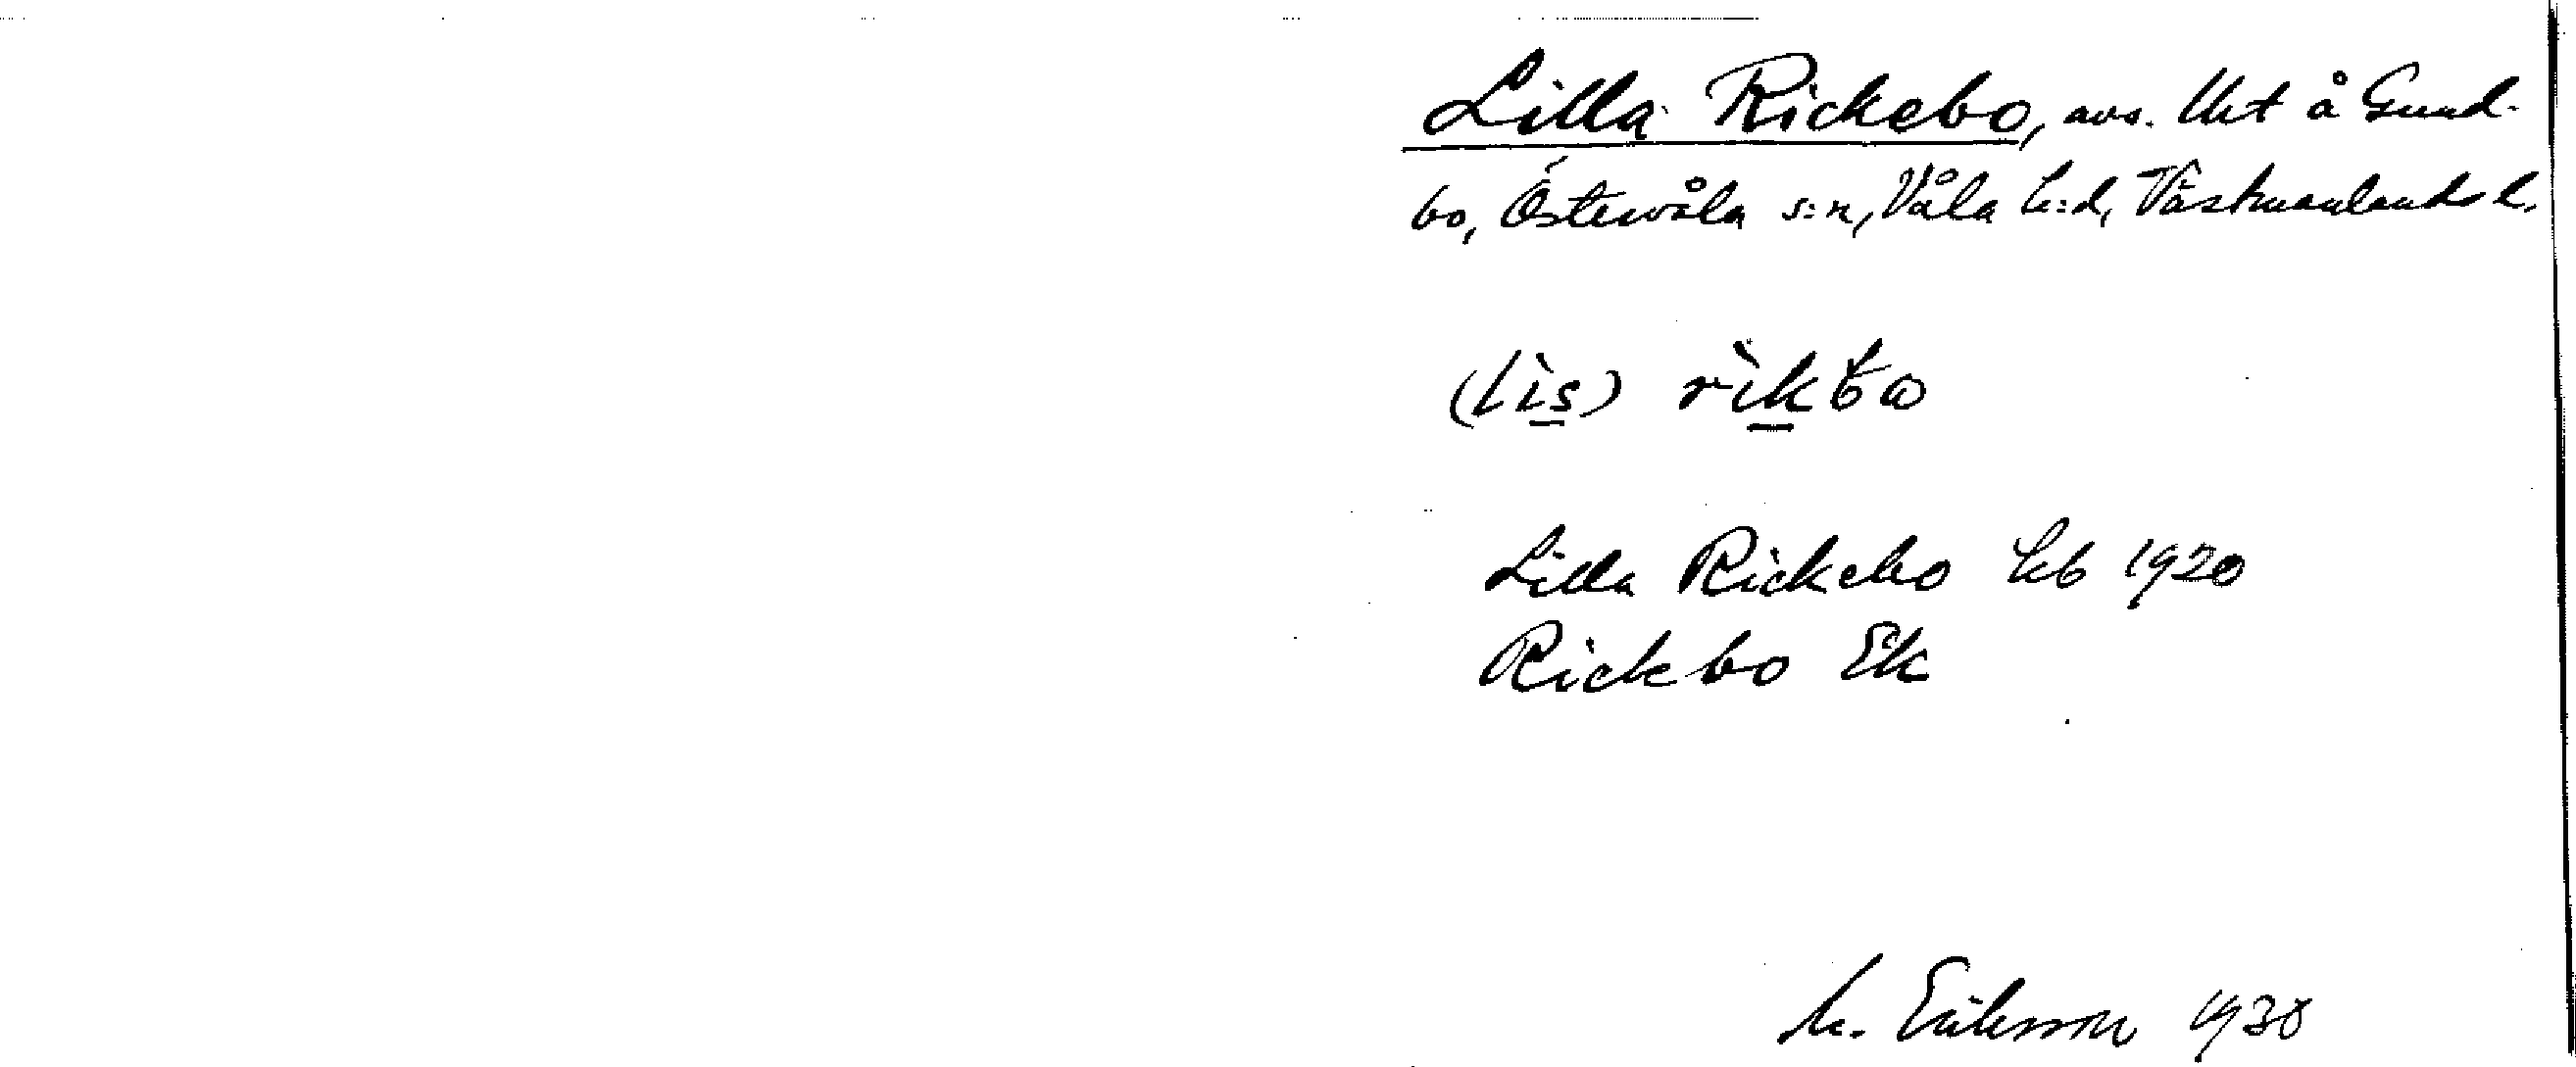 Lilla Rickebo, avs. Utt å Gund-
bo, Östervåla s:n, Våla h:d, Västmanlands l.
(lìs) rìkbω
Lilla Rickebo Lb 1920
Rickebo Ek
M. Eriksson 1938